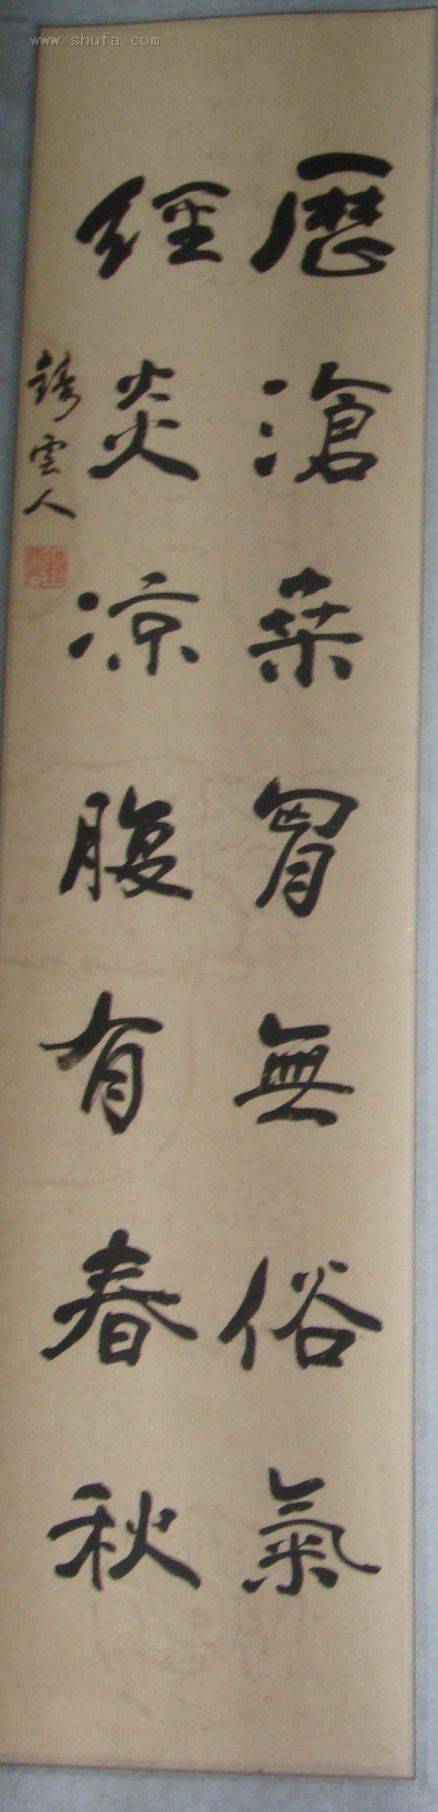 www.shufa.com
歷滄桑胷無俗氣
經炎凉腹有春秋
雲人